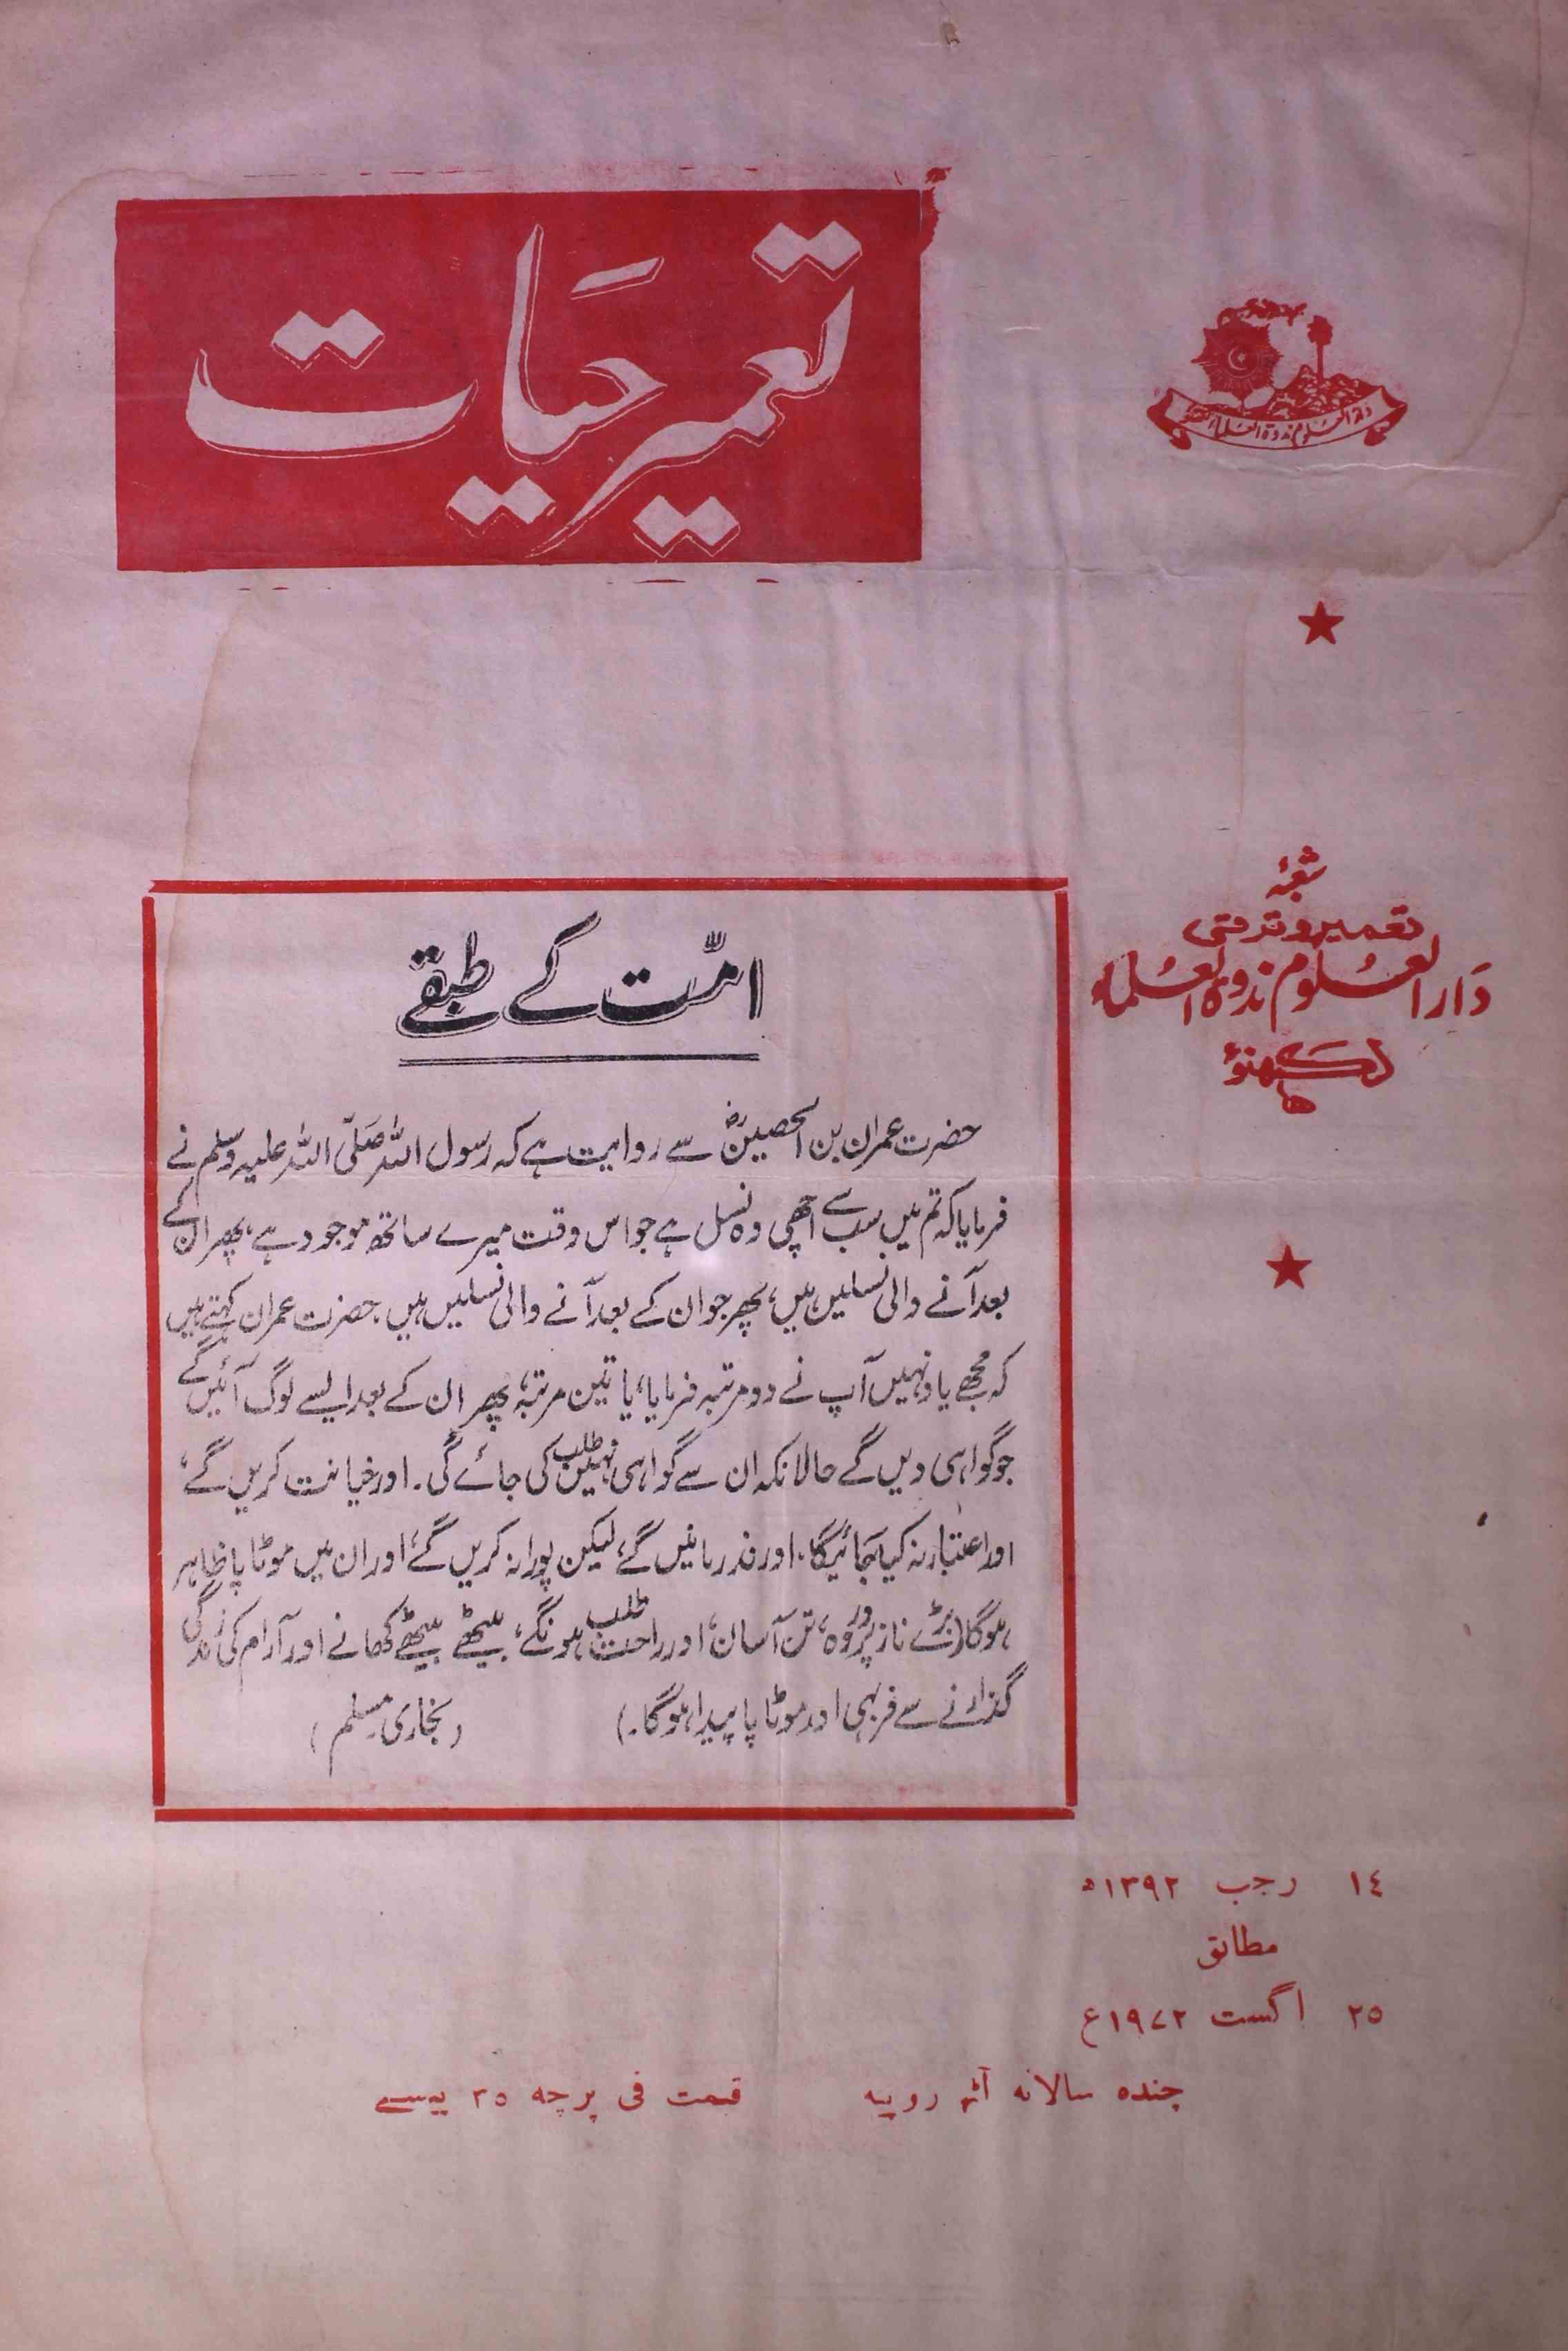 تعمیر حیات
دار العلوم ندوۃ العلماء
شعبۂ
تعمیر و ترقی
دَارالعُلوم ندوۃ العُلماء
لکھنؤ
امّت کے طبقے
حضرت عمران بن الحصینؓ سے روایت ہے کہ رسول اللہ صَلّی اللہ علیہ وسلم نے
فرمایا کہ تم میں سب سے اچھی وہ نسل ہے جو اس وقت میرے ساتھ موجود ہے، پھر ان کے
بعد آنے والی نسلیں ہیں، پھر جو ان کے بعد آنے والی نسلیں ہیں۔ حضرت عمران کہتے ہیں
کہ مجھے یاد نہیں آپ نے دو مرتبہ فرمایا، یا تین مرتبہ، پھر ان کے بعد ایسے لوگ آئیں گے
جو گواہی دیں گے حالانکہ ان سے گواہی نہیں طلب کی جائے گی۔ اور خیانت کریں گے،
اور اعتبار نہ کیا جائیگا، اور نذر مانیں گے، لیکن پورا نہ کریں گے، اور ان میں موٹاپا ظاہر
ہوگا (بڑے ناز پروردہ، تن آسان، اور راحت طلب ہونگے، بیٹھے بیٹھے کھانے اور آرام کی زندگی
گذارنے سے فربہی اور موٹاپا پیدا ہوگا۔) (بخاری مسلم)
١٤ رجب ١٣٩٢ھ
مطابق
٢٥ اگست ١٩٧٢ع
چندہ سالانہ آٹھ روپیہ قیمت فی پرچہ ٣٥ پیسے